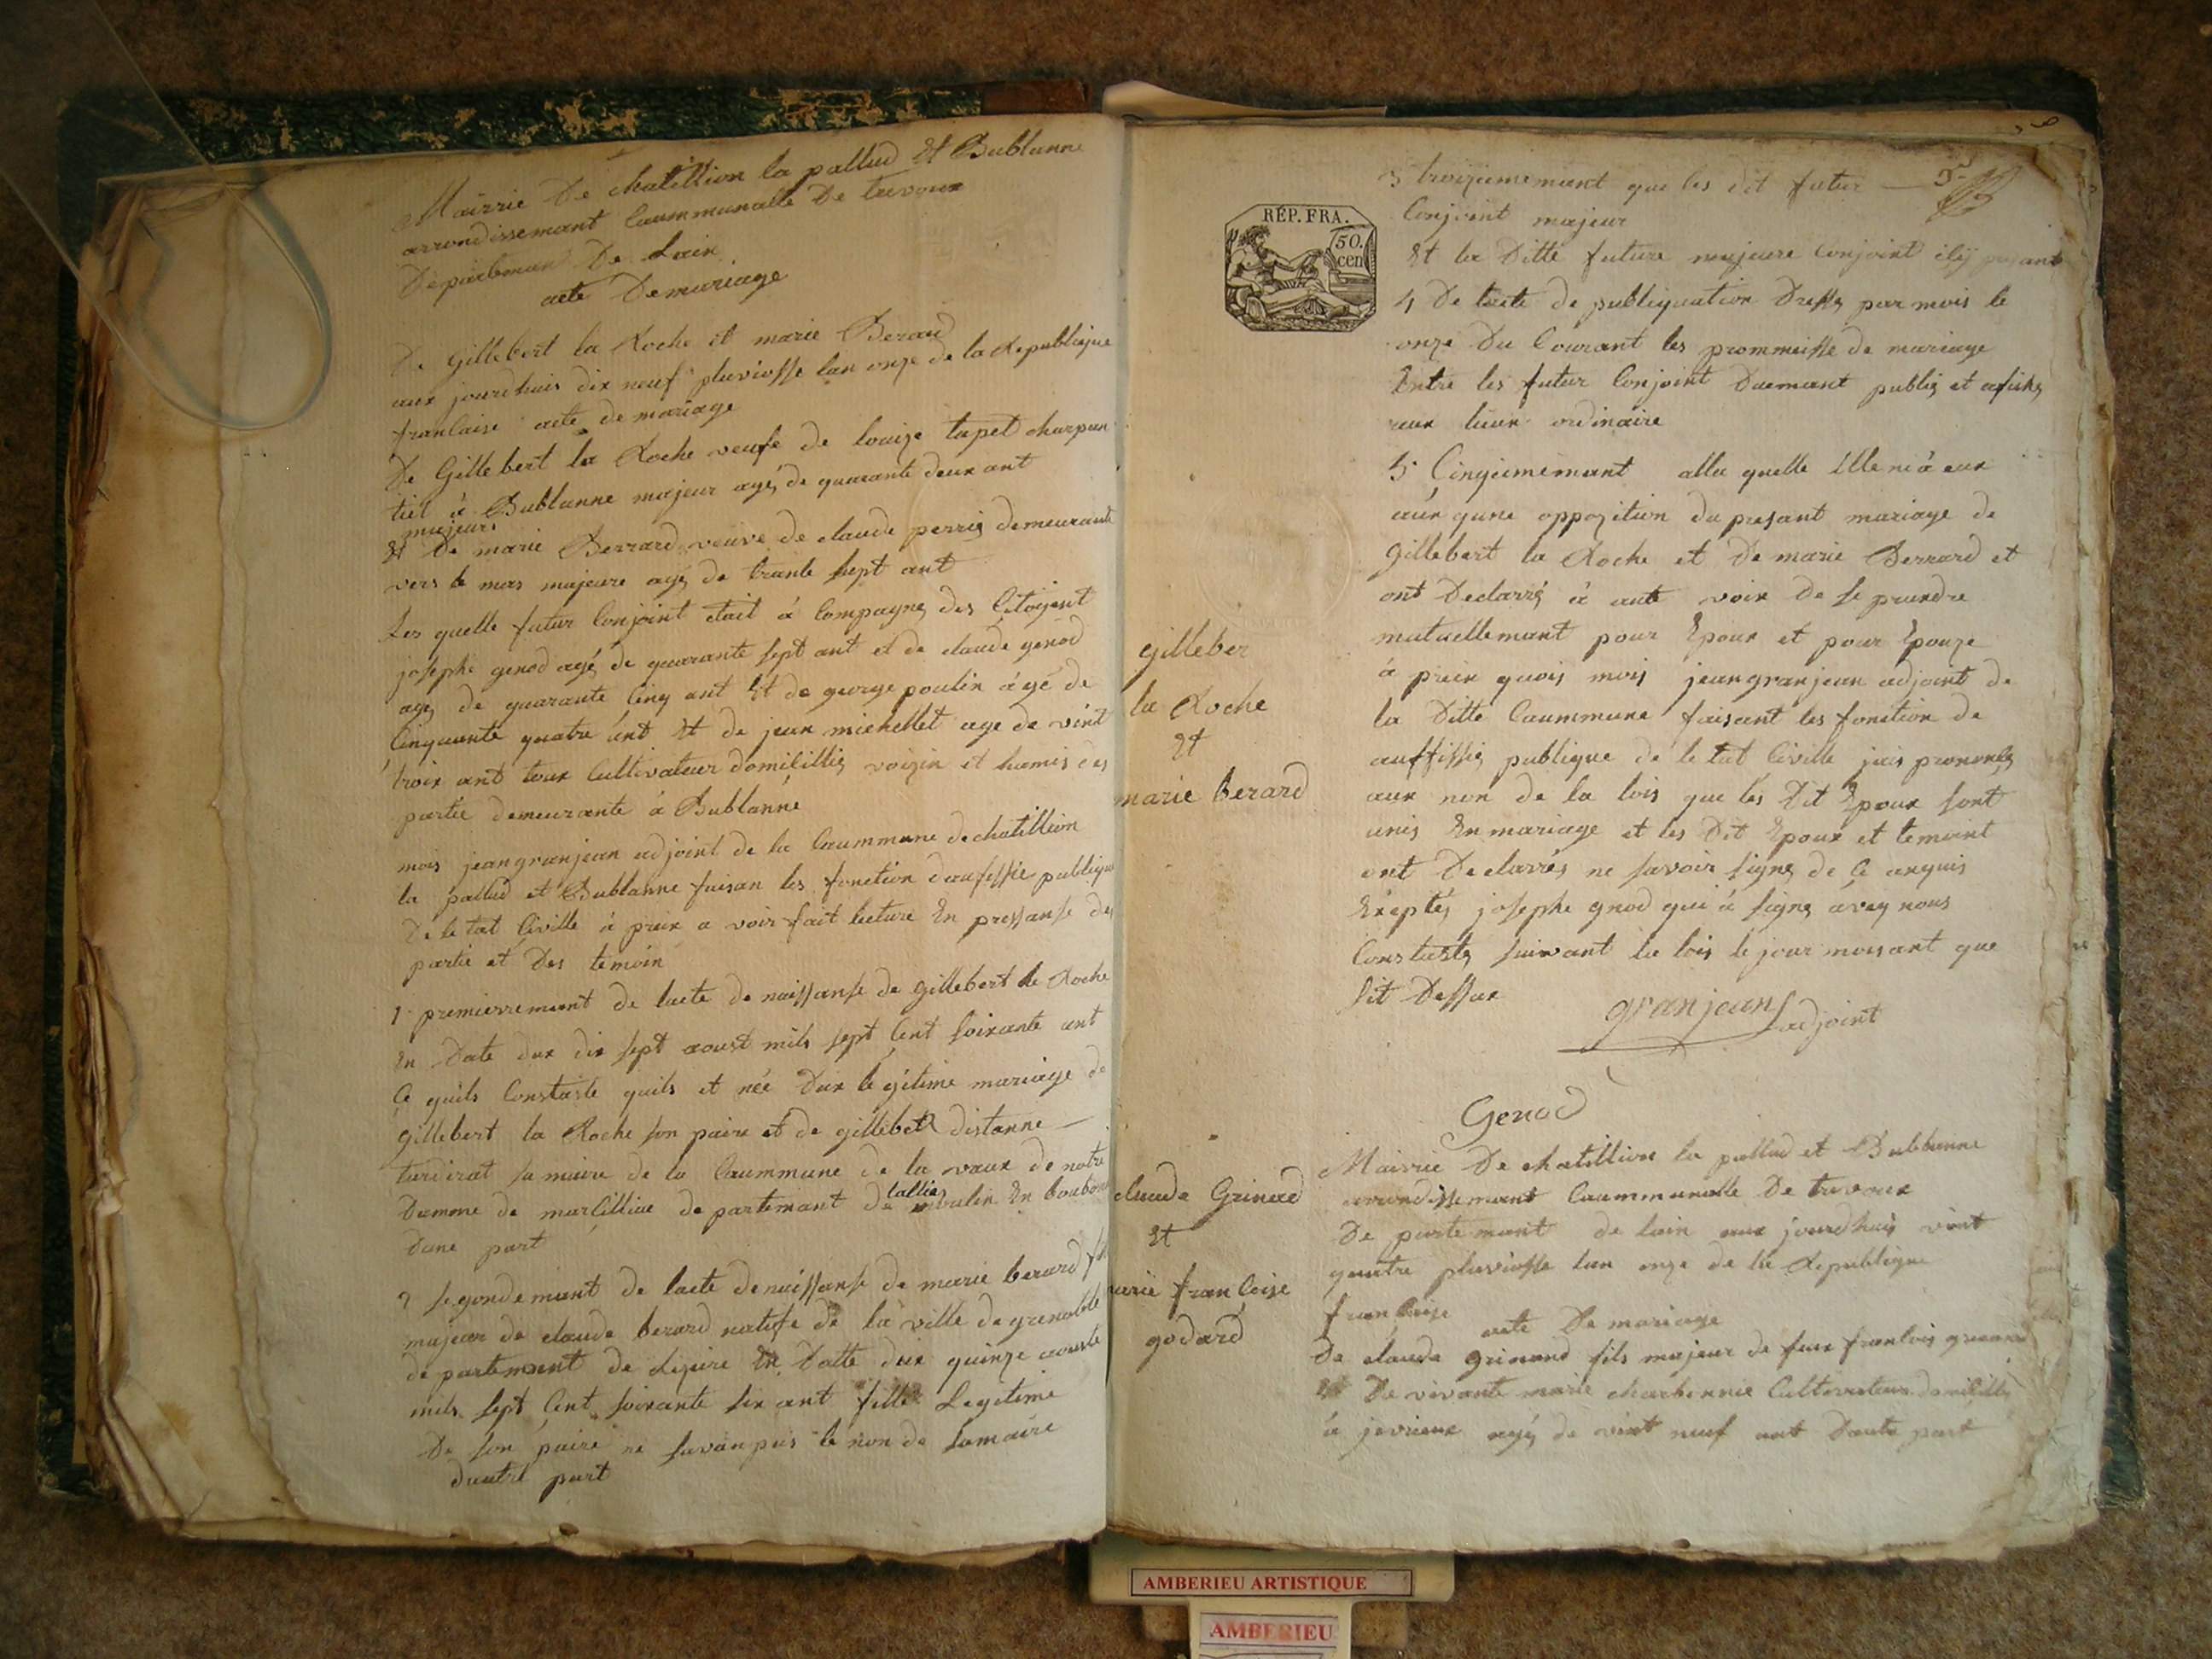 Mairrie De chatillion la pallud Et Bublanne
arrondissemant Caummunalle De trevoux
Departeman De Lain
acte De mariage
De gillebert la Roche et marie Berard
aux jourdhuis dix neuf pluviosse lan onze de la Republique
francaise acte de mariage
De Gillebert la Roche veufe de louize tapet charpan
tiel à Bublanne majeur agé de quarante deux ant
majeure
Et De marie Berrard veuve de claude perrie demeurante
vers le mas majeure agé de trante sept ant
Les quelle futur Conjoint etait à Compagné des Citoyent
josephe genod agé de quarante sept ant et de claude genod
agé de quarante Cinq ant Et de george poulin àgé de
Cinquante quatre ant Et de jean michellet age de vint
troix ant toux Cultivateur domicillié voizin et hamis des
partie demeurante à Bublanne
mois jean granjean adjoint de la Caummune de chatillion
la pallud et Bublanne faisan les fonction daufissie publique
De le tat Civille à preix a voir fait lecture En pressansse des
partie et Des temoin
1 premierremant de lacte de naissansse de gillebert la Roche
En Date dux dix sept aoust mils sept Cent soixante ant
Ce quils Constaste quils et née Dux legitime mariage de
gillebert la Roche son paire et de gillebet distanne —
turdirat sa maire de la Caummune de la vaux de notre
lallier
Damme de marcilliae de partemant de moulin En boubon
Dune part
2 segondemant de lacte de naissansse de marie berard fil
majeur de claude berard natife de la ville de grenoble
de partement de Lizire En Datte dux quinze aouste
mils sept Cent soixante six ant fille Legitime
De son paire ne savan pas le non de samaire
dautre part
RÉP. FRA.
50.
cen
5
3 troiziememant que les dit futur —
Conjoint majeur
Et la Ditte future majeure Conjoint ilÿ presant
4 De lacte de publiquation Dressé par mois le
onze Du Courant les prommeisse de mariage
Entre les futur Conjoint Duemant publié et afiché
aux lieux ordinaire
5 Cinqiememant alla quelle Ille nià eux
aux qune oppozition du presant mariage de
gillebert la Roche et De marie Berrard et
ont Declarré à aute voix De se prandre
mutuellemant pour Epoux et pour Epouze
à preix quois mois jean granjean adjoint de
la Ditte Caummune faisant les fonction de
auffissié publique de le tat Civille jais prononcé
aux non de la lois que les Dit Epoux sont
unis En mariage et les Dit Epoux et temoint
ont Declarrés ne savoir signé de Ce anquis
Exeptés josephe gnod qui à signé àveq nous
Constasté suivant la lois le jour moisant que
sit Dessux
granjean adjoint
Genod
gilleber
la Roche
Et
marie berard
Mairrie De chatillion la pallud et Bublanne
arrondissemant Caummunalle De trevoux
De partemant de lain aux jourdhuis vint
quatre pluviosse lan onze de la Republique
francaise acte De mariage
De claude grinand fils majeur de feux francois
Et De vivante marie charbonnie Cultivateur domicillié
à jevrieux agé de vint neuf ant Daute part
claude Grinard
Et
marie francoise
godard
AMBERIEU ARTISTIQUE
AMBERIEU